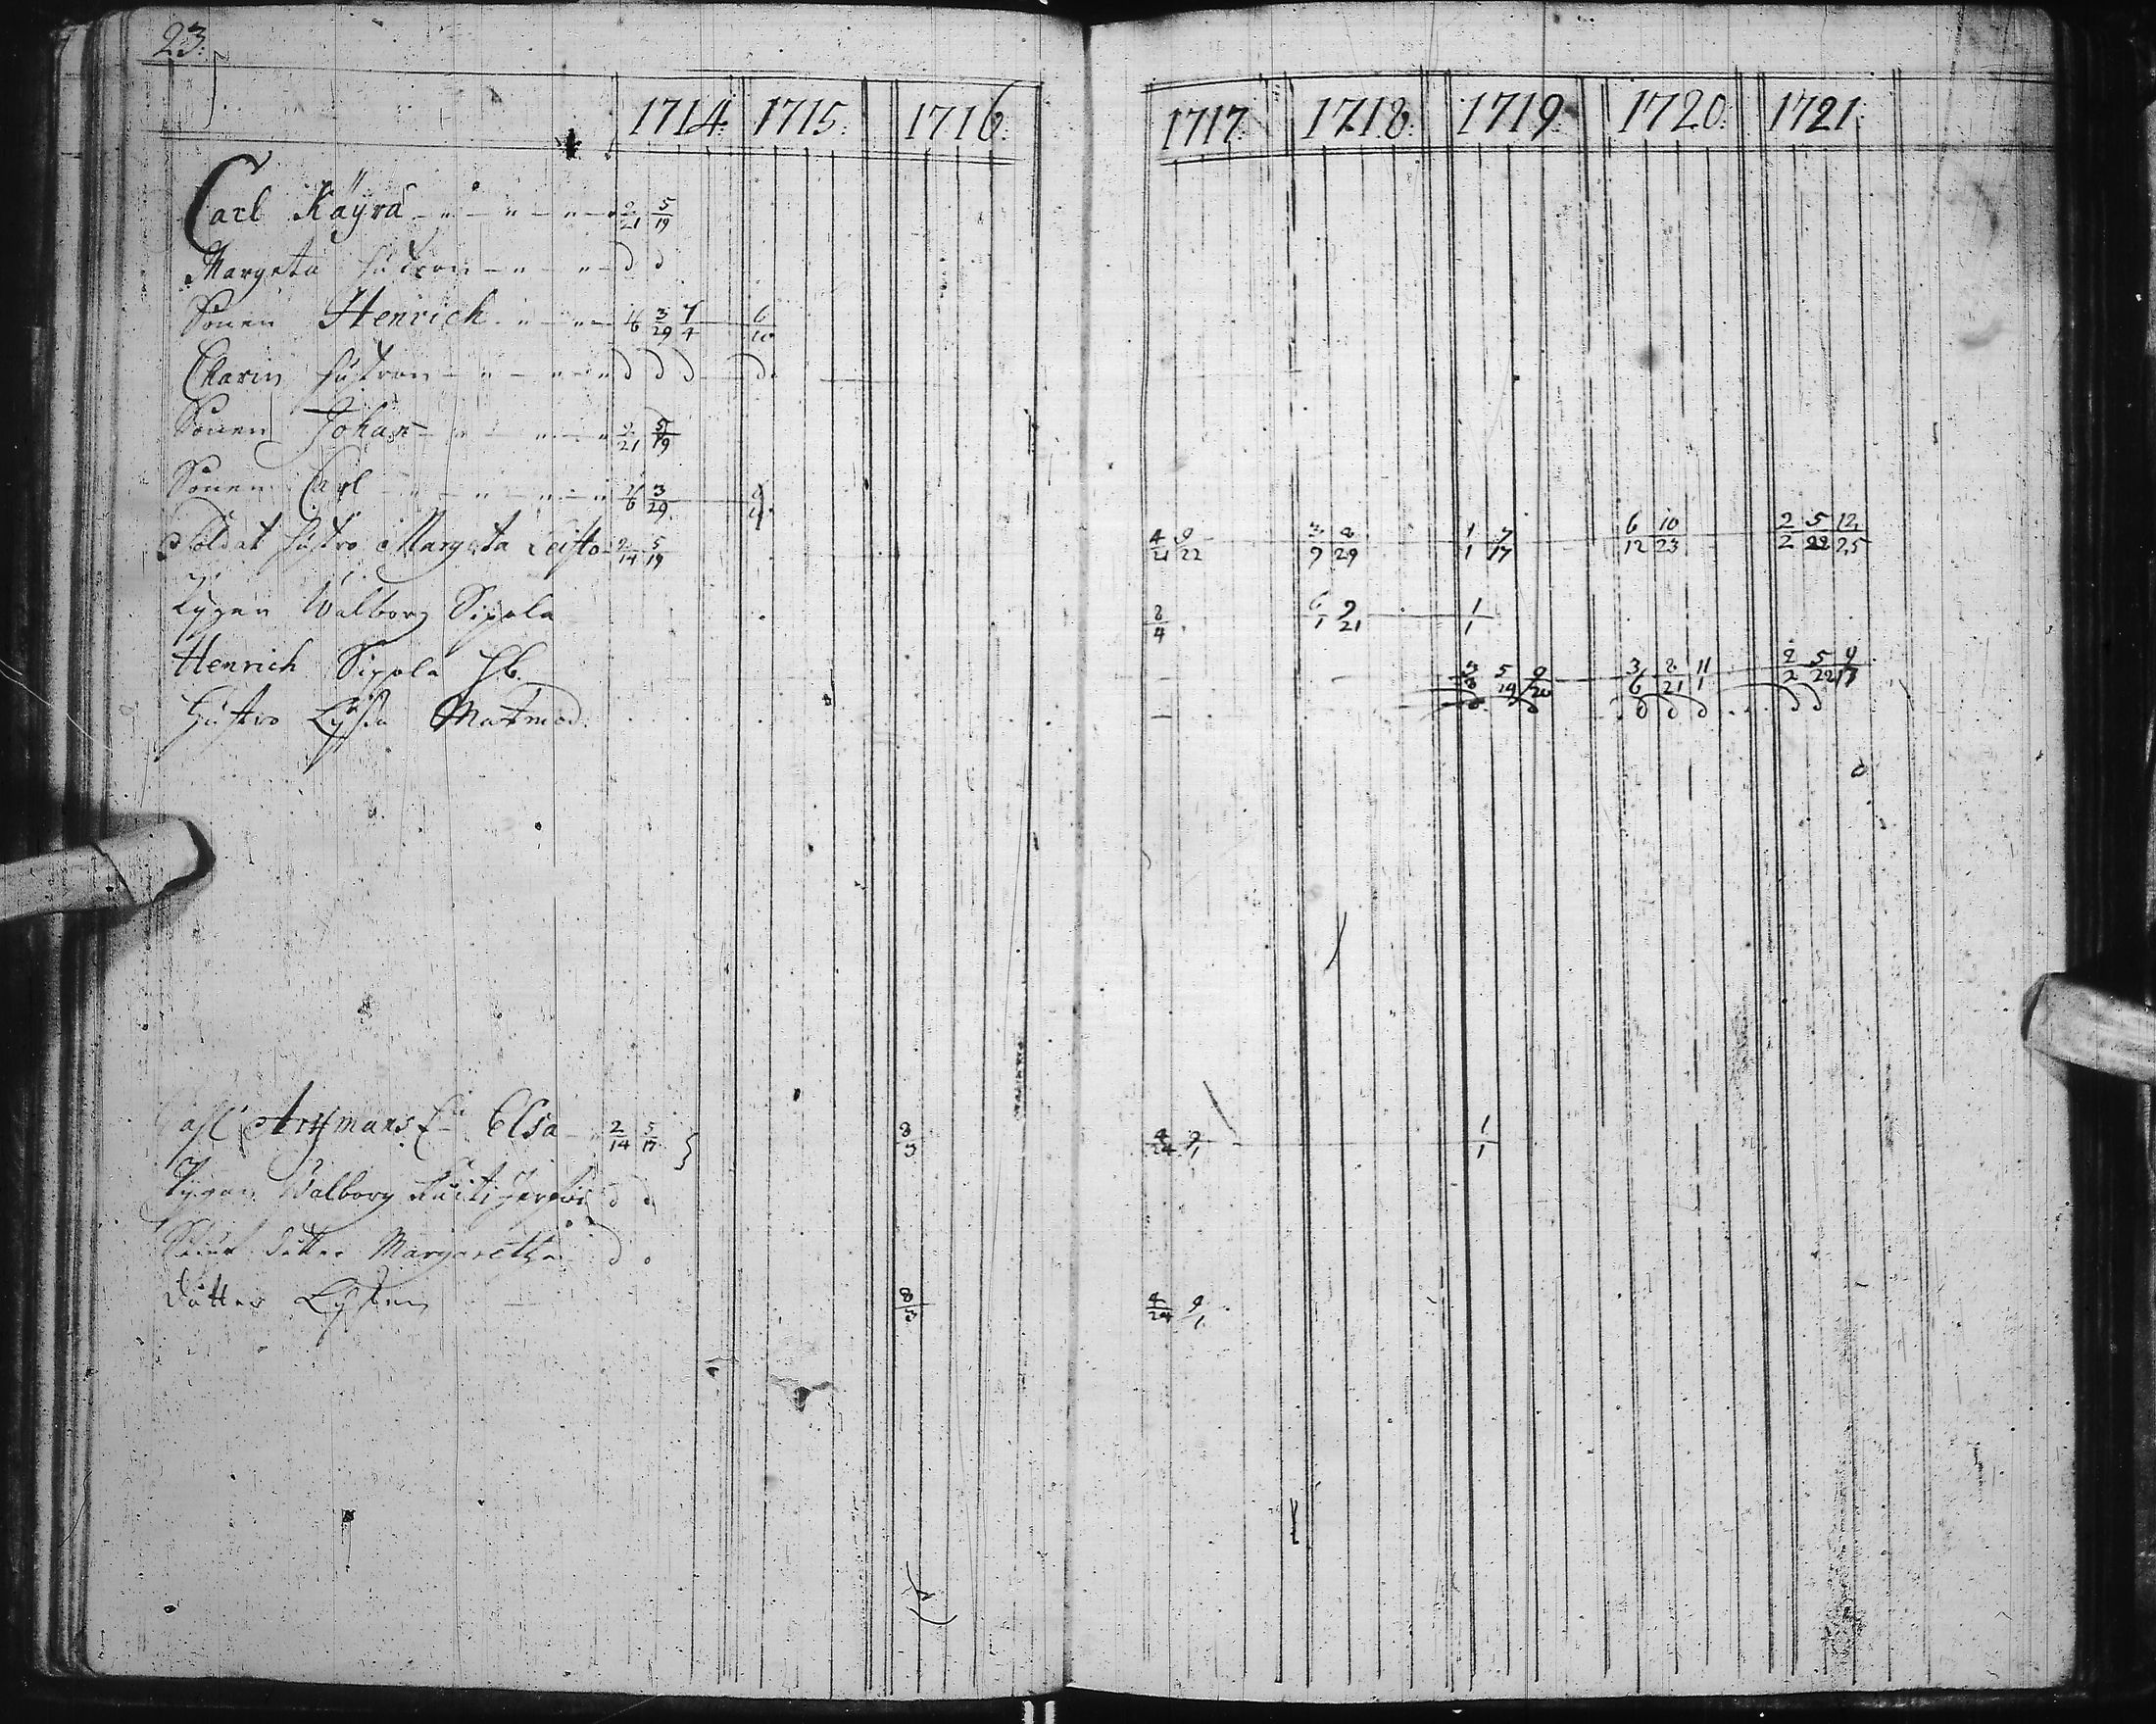 23.
1714. 1715. 1716. 1717. 1718. 1719. 1720. 1721.
Carl Käyrä 2/21 5/19
Margeta hustron d d
Sonen Henrich 16 3/29 7/4 6/10
Carin hustron d d d d
Sonen Johan 2/21 5/19
Sonen Carl 3/29
Soldat hustro Margeta Leisto 2/14 5/19 4/21 9/22 3/9 8/29 1/1 7/17 6/12 10/23 2/2 5/22 12/25
Pygan Walborg Sipola 8/4 6/1 9/21 1/1
Henrich Sipola Hb. 3/8 5/19 9/20 3/6 8/21 11/1 2/2 5/22 9/17
Hustro Lijsa Matsmod. d d d d d d d
Elsa 2/14 5/17 8/5 4/24 9/1 1/1
Pygan Walborg d d
dotter Margaretha d d
dotter Lijsa 8/5 4/24 9/1